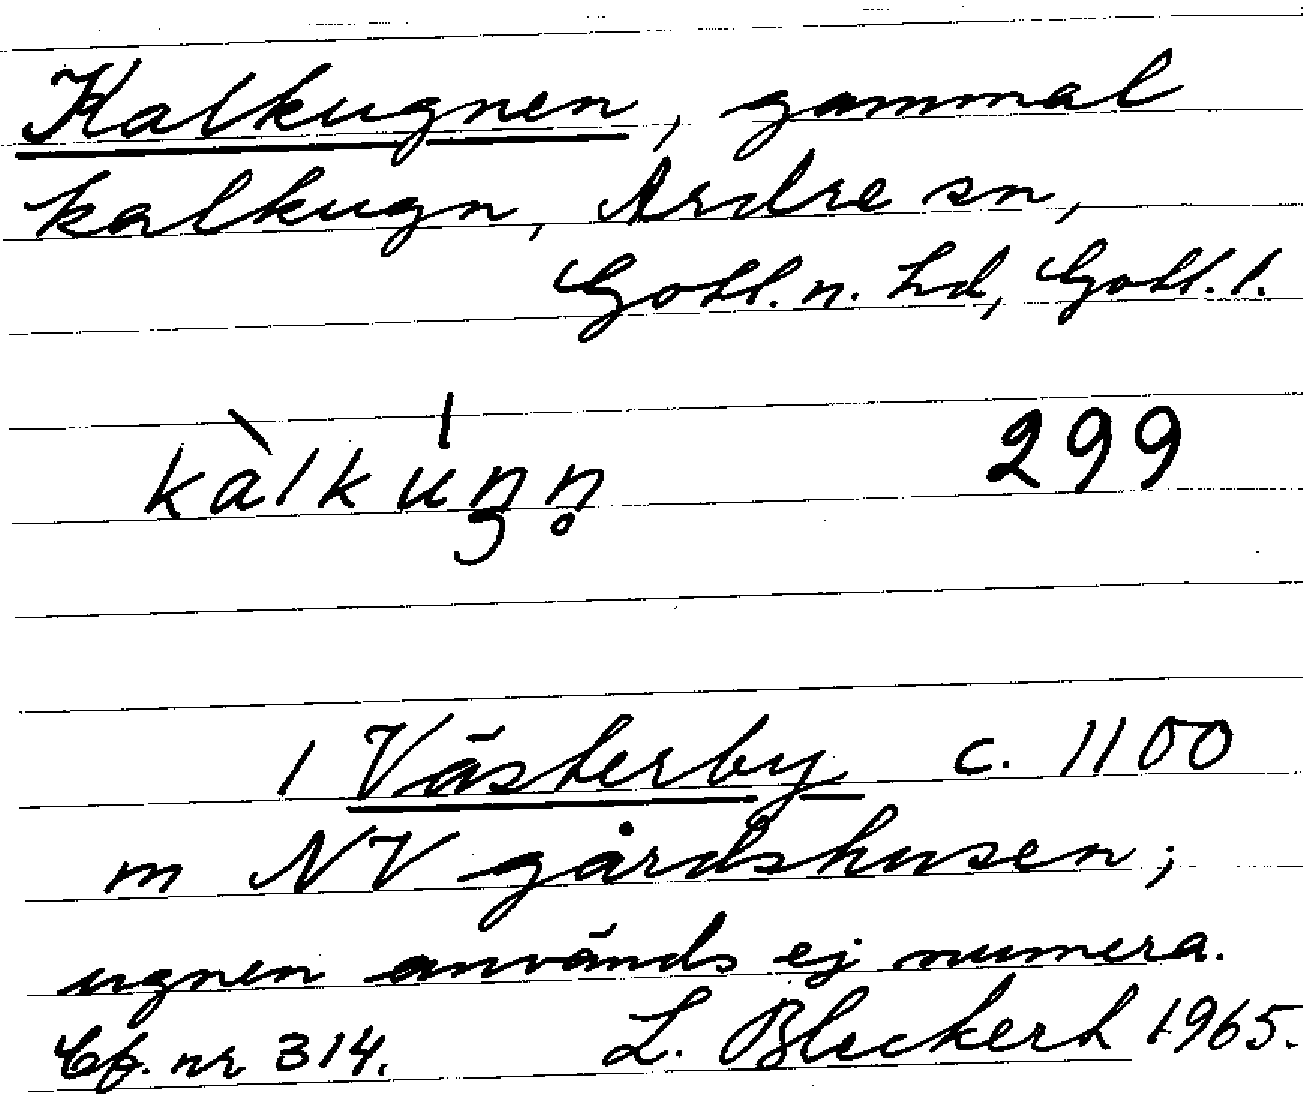 Kalkugnen, gammal
kalkugn, Ardre sn,
Gotl. n. hd, Gotl. l.
kàlkúŋn̥ 299
1 Västerby c. 1100
m NV gårdshusen;
ugnen används ej numera.
Cf. nr 314. L. Bleckert 1965.